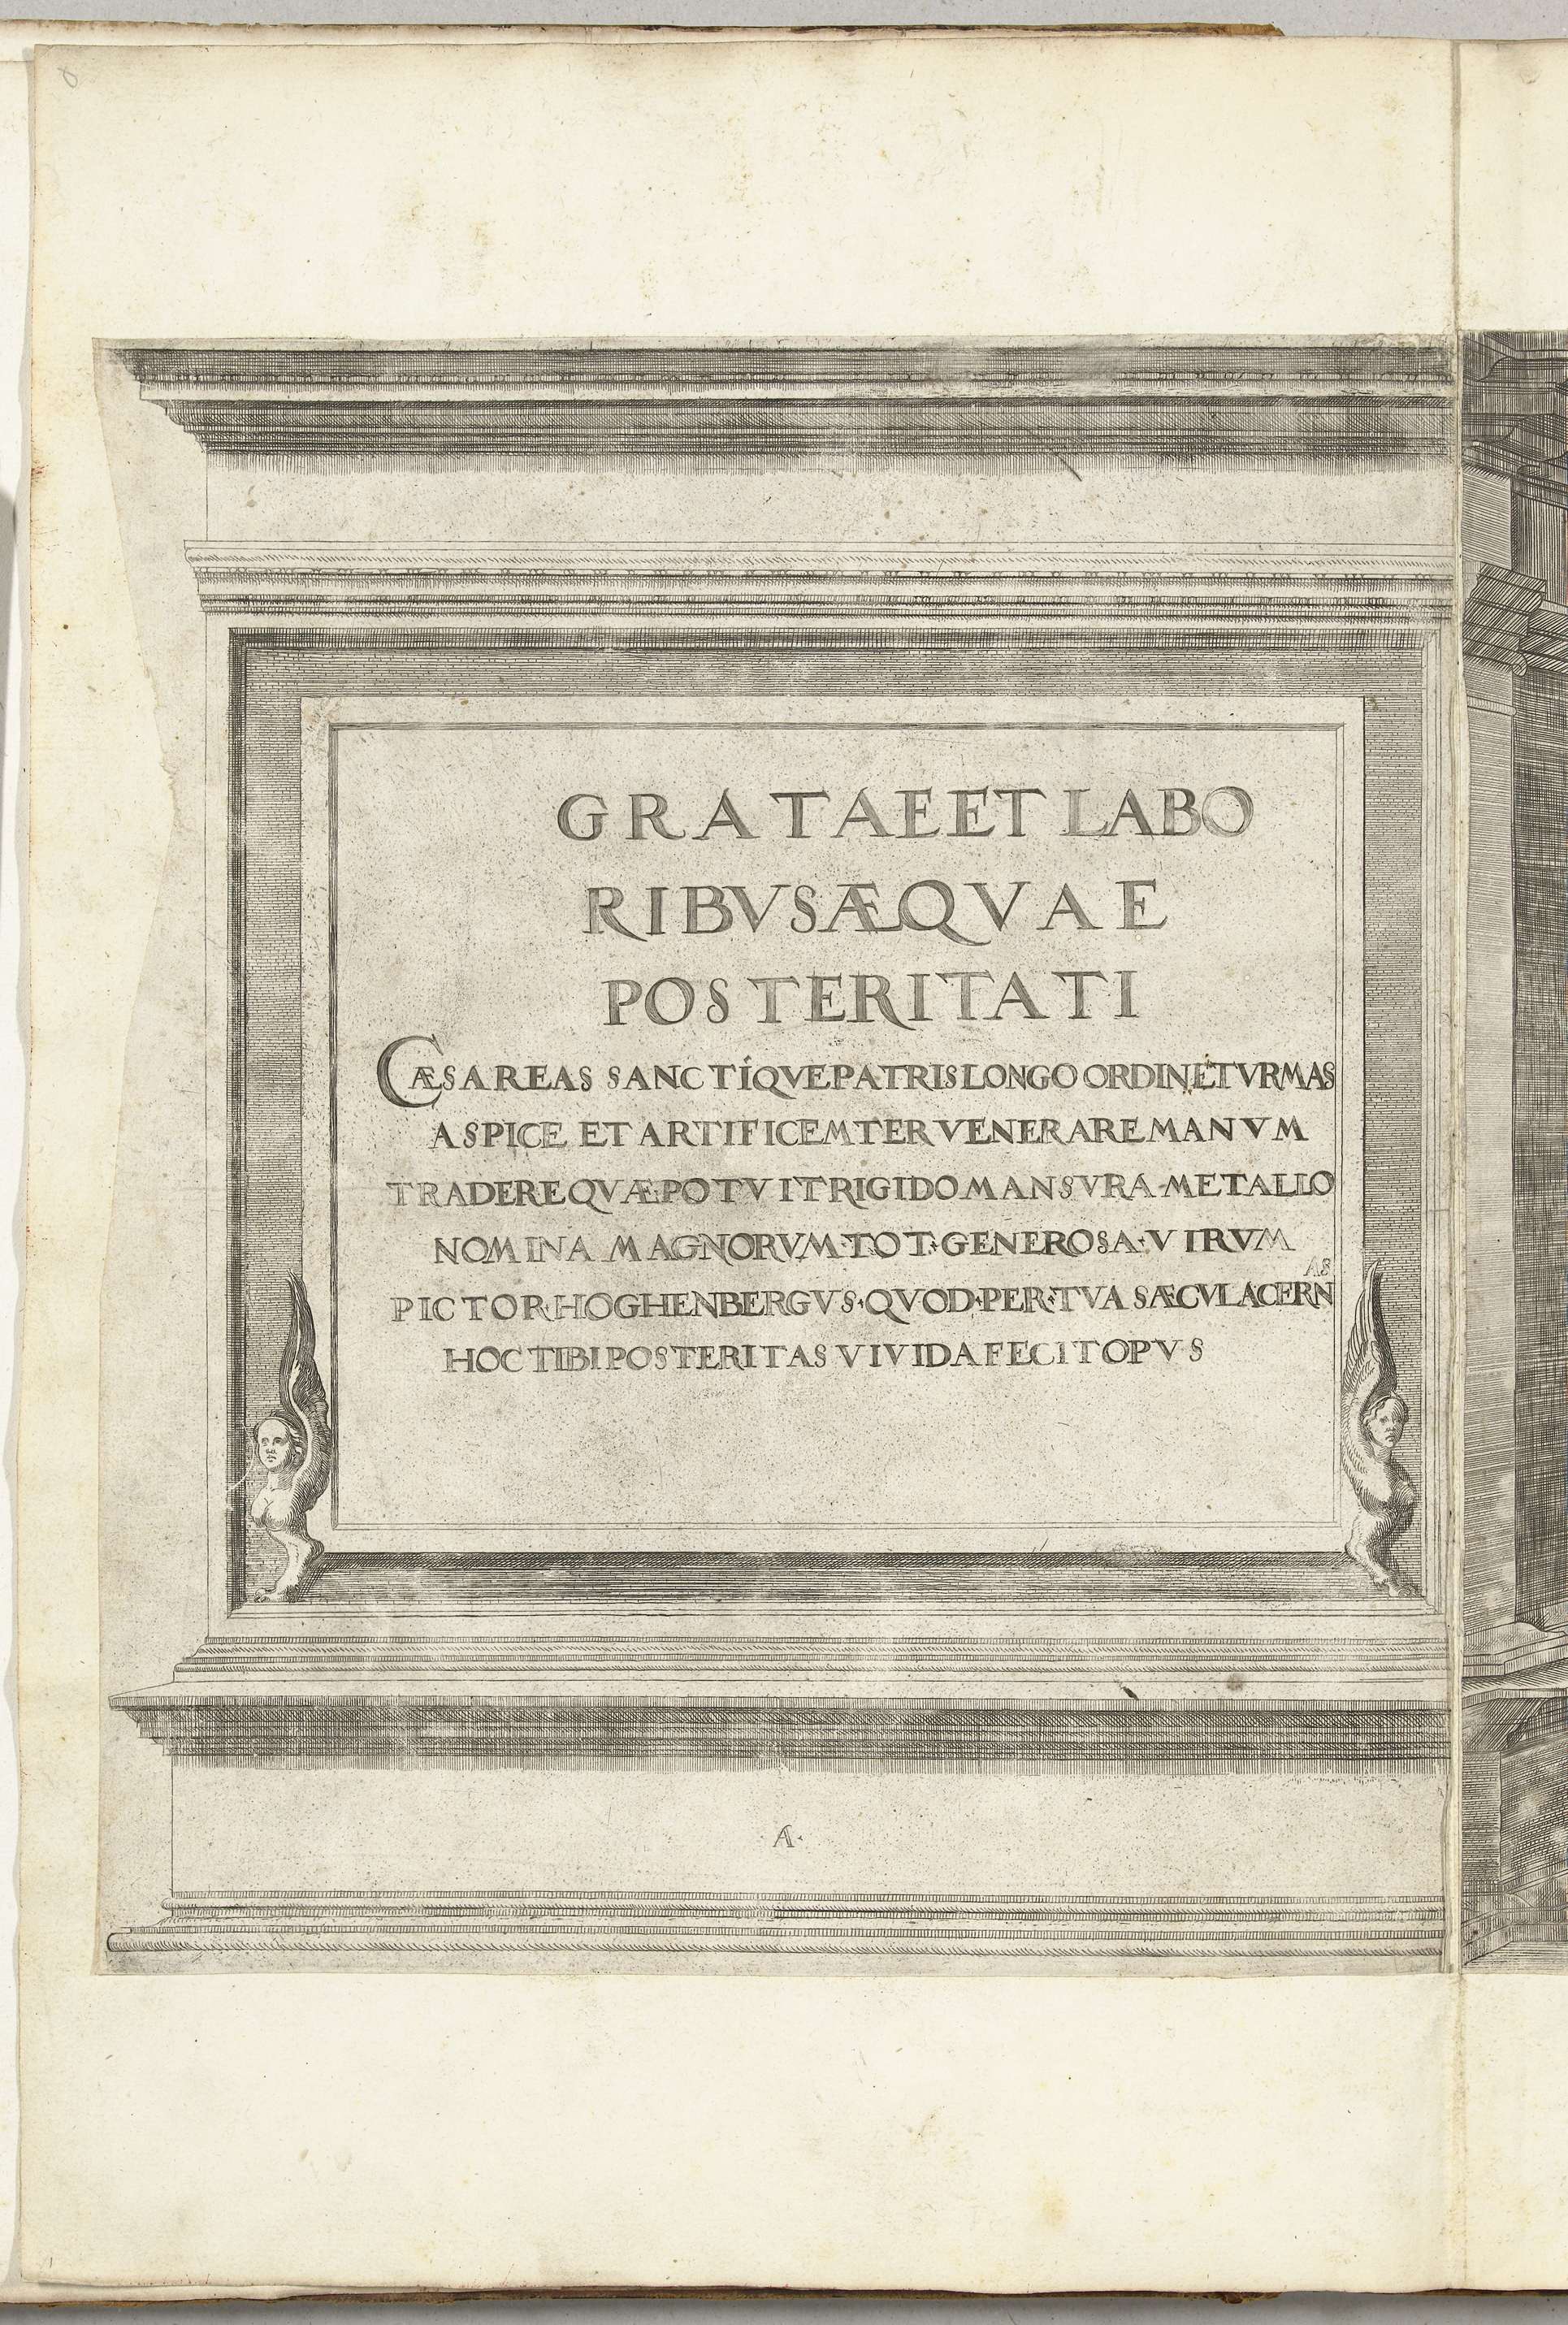 GRATAE ET LABO
RIBVS ÆQVAE
POSTERITATI
CÆSAREAS SANCTÍQVE PATRIS LONGO ORDINE TVRMAS
ASPICE ET ARTIFICEM TER VENERARE MANVM
TRADERE QVÆ POTVIT RIGIDO MANSVRA·METALLO
NOMINA MAGNORVM·TOT·GENEROSA·VIRVM
PICTOR·HOGHENBERGVS·QVOD·PER·TVA SÆCVLA CERNAS
HOC TIBI POSTERITAS VIVIDA FECIT OPVS
A·